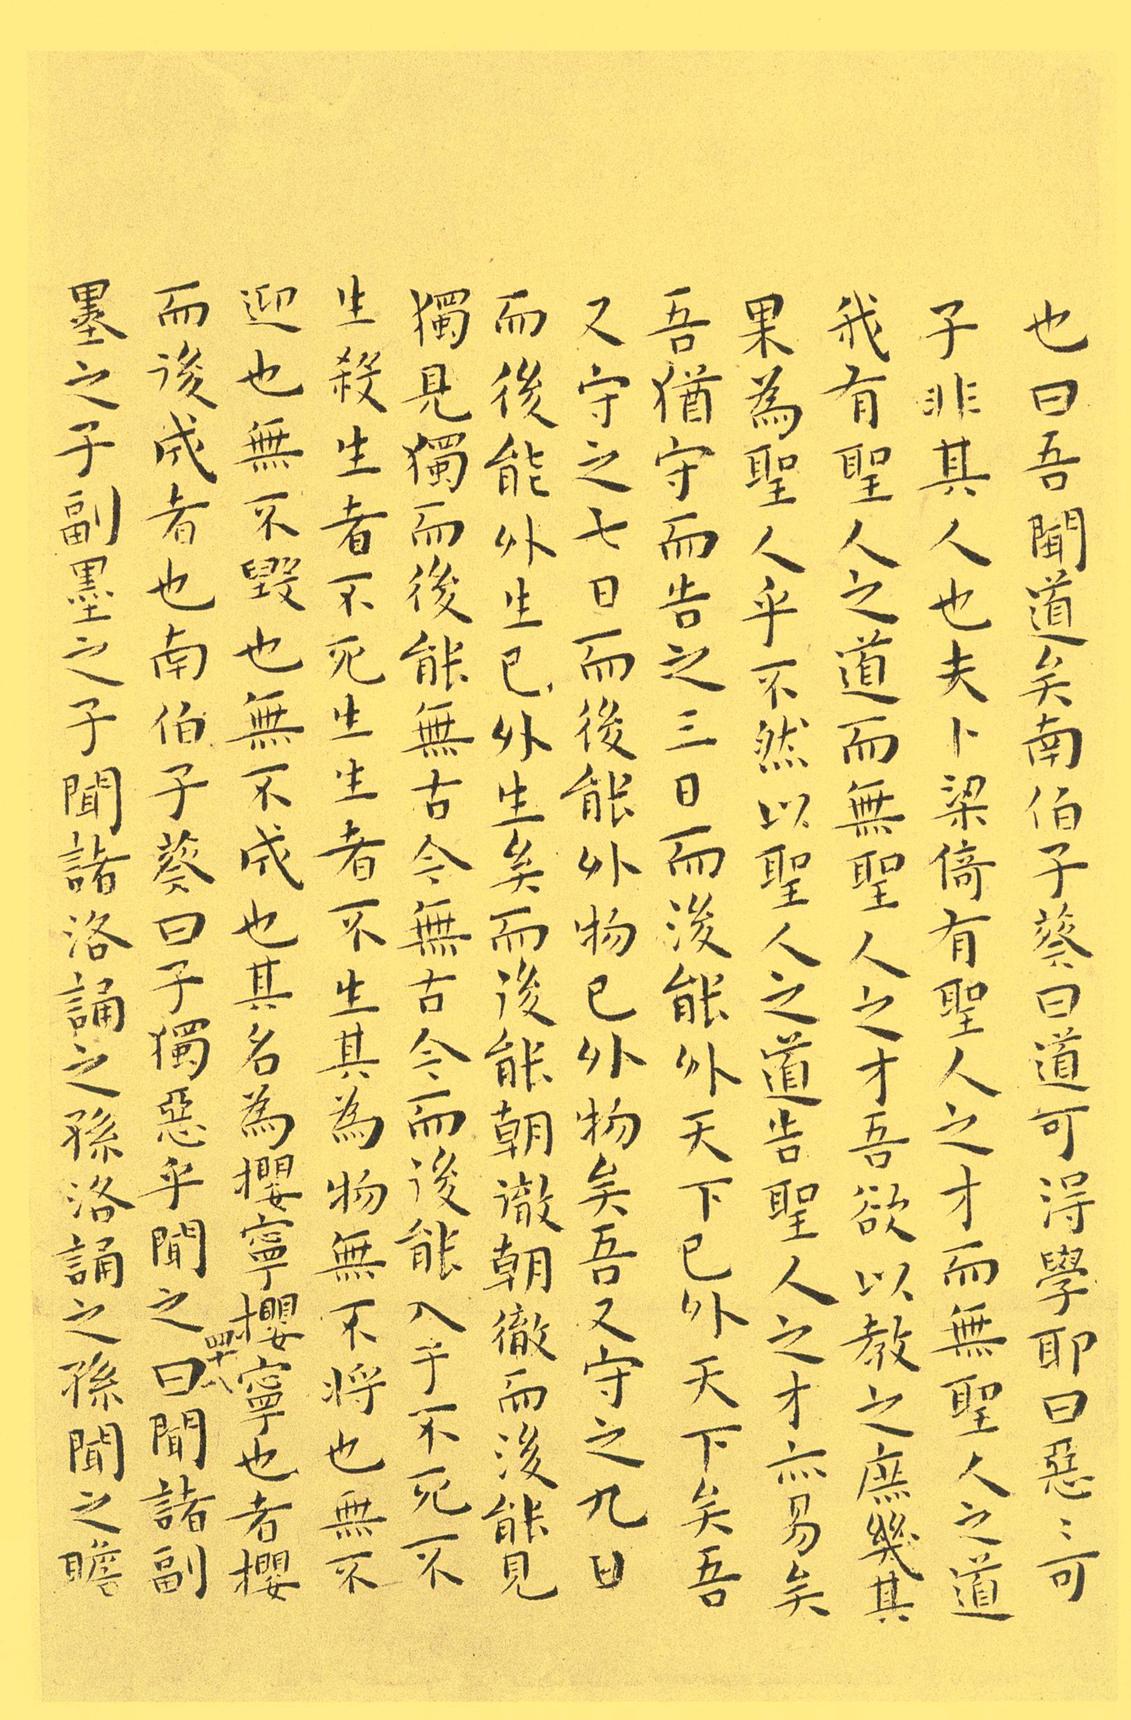 也曰吾聞道矣南伯子葵曰道可得學耶曰惡〻可
子非其人也夫卜梁倚有聖人之才而無聖人之道
我有聖人之道而無聖人之才吾欲以教之庶幾其
果為聖人乎不然以聖人之道告聖人之才亦易矣
吾猶守而告之三日而後能外天下已外天下矣吾
又守之七日而後能外物已外物矣吾又守之九日
而後能外生已外生矣而後能朝徹朝徹而後能見
獨見獨而後能無古今無古今而後能入乎不死不
生殺生者不死生生者不生其為物無不將也無不
迎也無不毀也無不成也其名為攖寧攖寧也者攖
四十八
而後成者也南伯子葵曰子獨惡乎聞之曰聞諸副
墨之子副墨之子聞諸洛誦之孫洛誦之孫聞之瞻